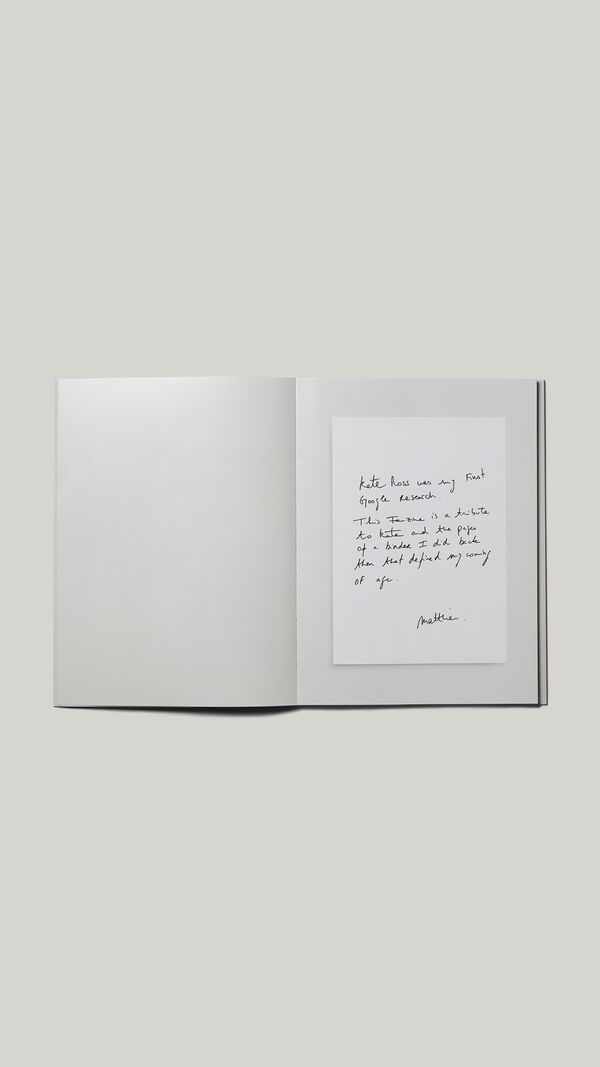 Kate was my First
Google Research.
This Fanzine is a tribute
to Kate and the pages
of a binder I did back
then that defined my coming
of age.
Matthieu.